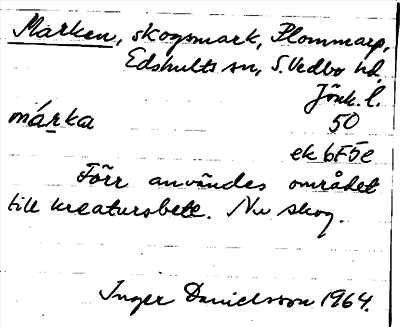 Marken, skogsmark, Plommarp,
Edshults sn, S. Vedbo hd,
Jönk. l.
márka 50
ek 6F5e
Förr användes området
till kreatursbete. Nu skog.
Inger Danielsson 1964.